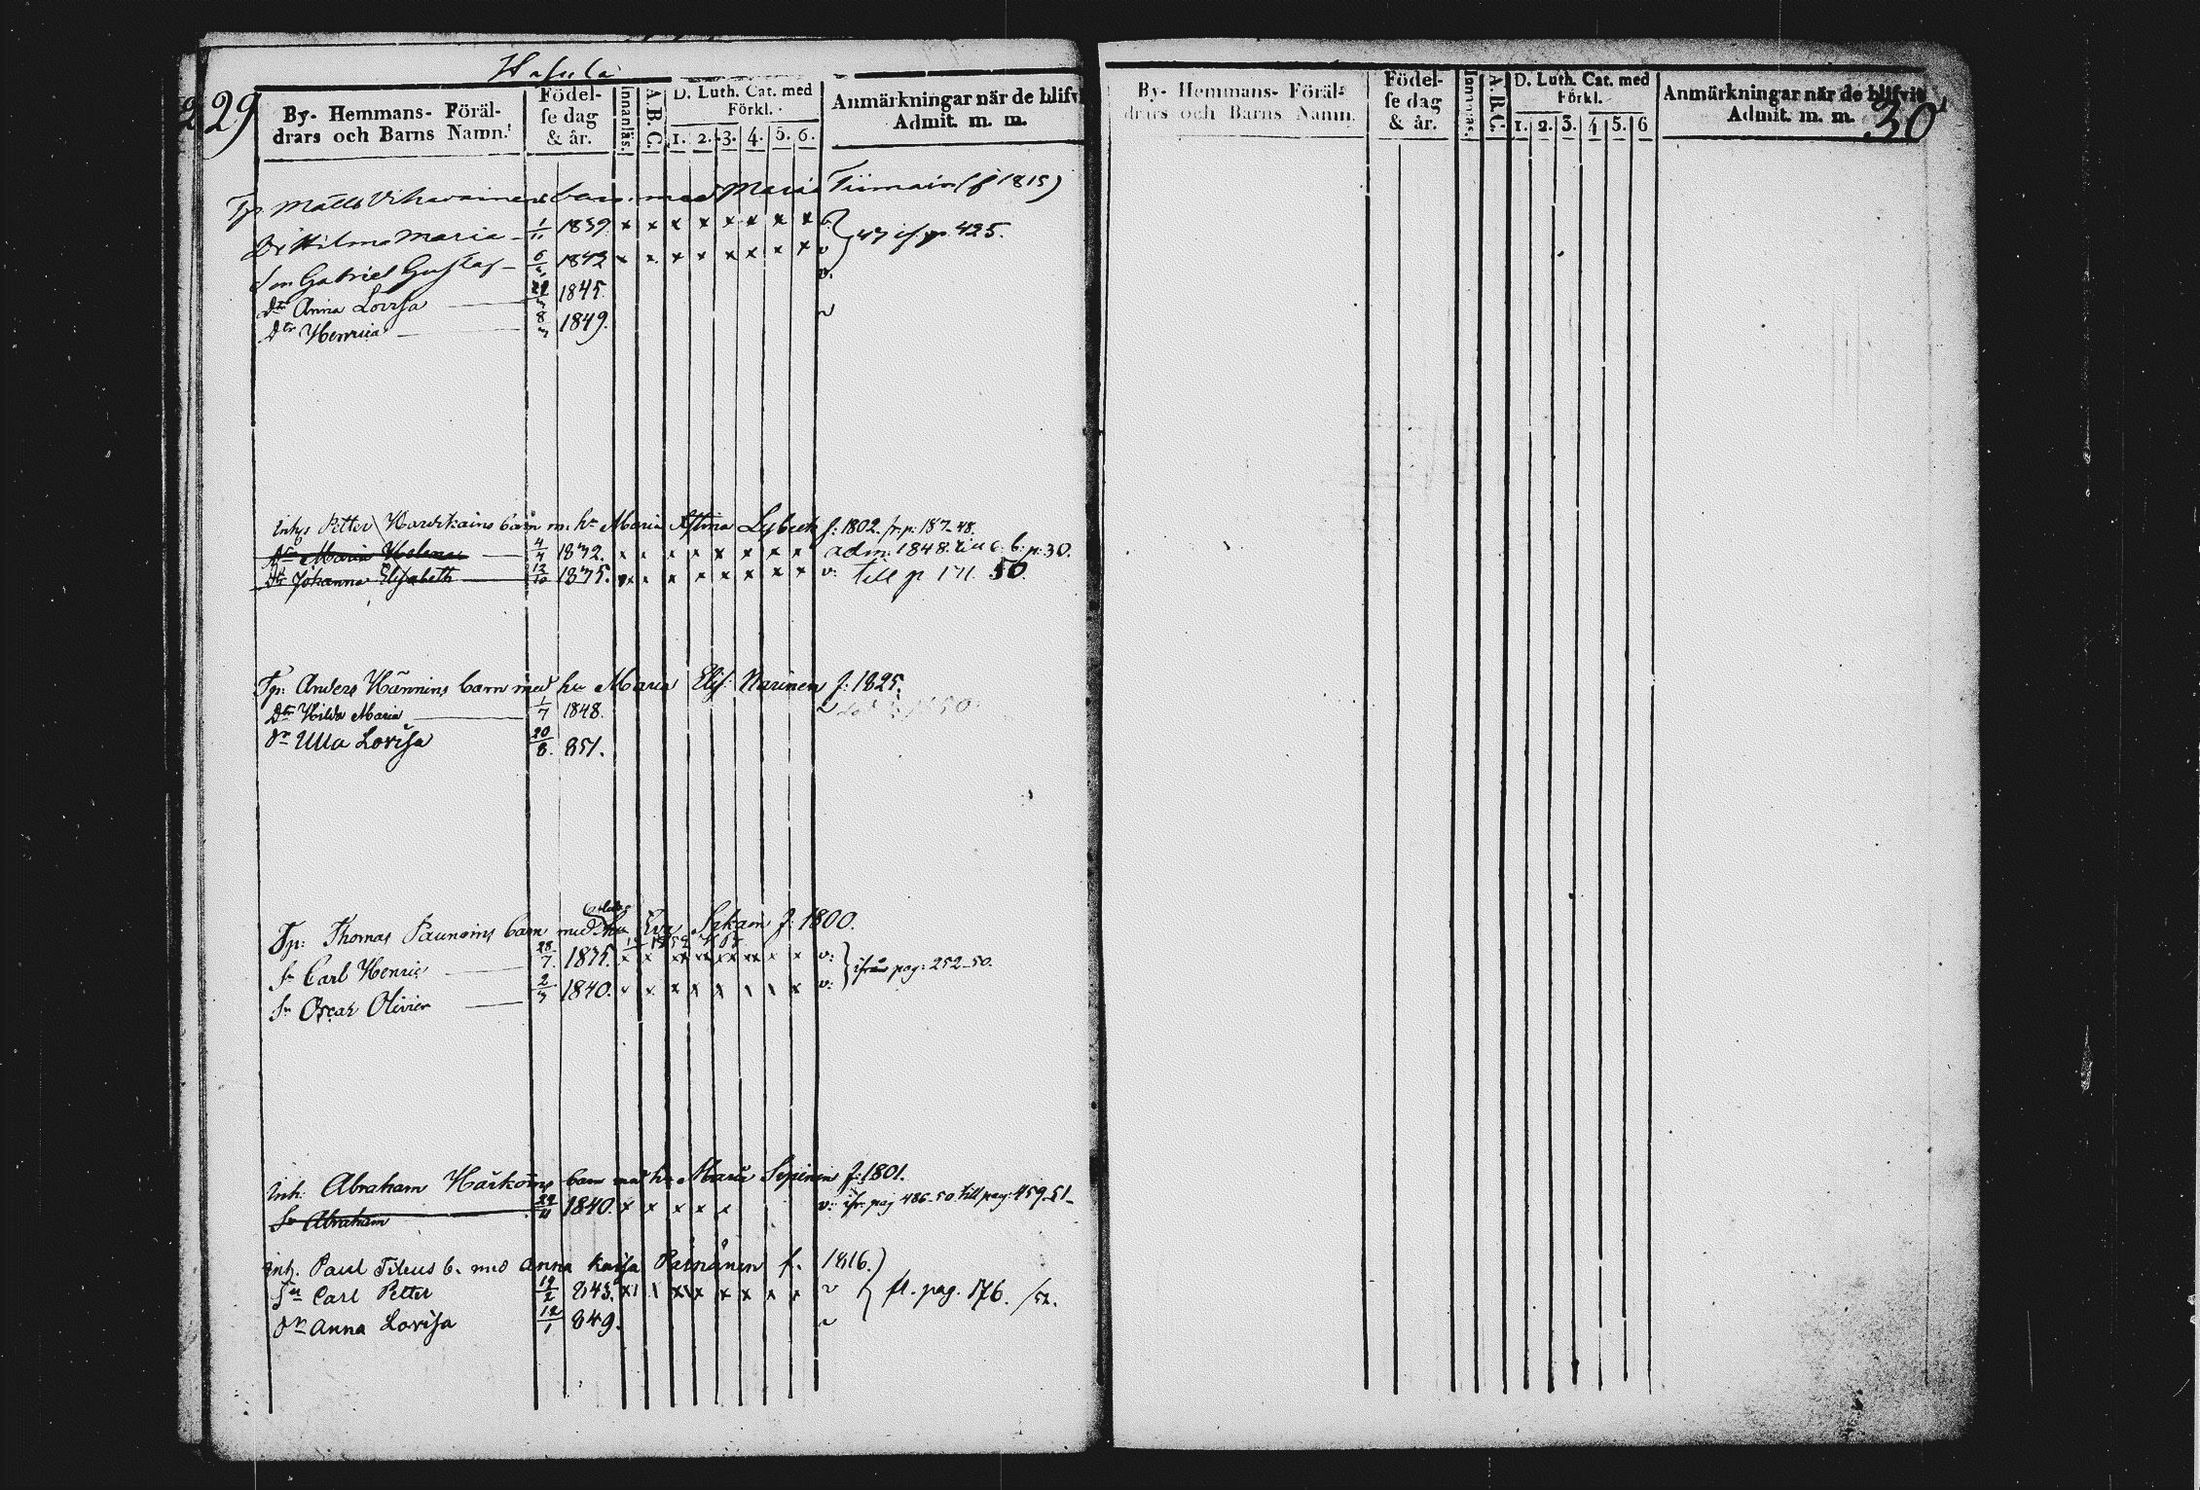 Hasula
29
By- Hemmans- Föräl-
drars och Barns Namn.
Födel-
se dag
& år.
Innanläs.
A.B.C.
D. Luth. Cat. med
Förkl.
1. 2. 3. 4. 5. 6.
Anmärkningar när de blifvi
Admit. m. m.
Tp. Matts Vihavainens barn med Maria Tiimain (f 1815)
Dr Hilma Maria 1/11 1839. x x x x x x x x v.
47 if p. 425.
Son Gabriel Gustaf 1842 x x x x x x x x v
Dtr Anna Lovisa 1845. v.
Dtr Henrica 1849. v
Inhys Petter barn m. hu Maria f: 1802. fr p: 187-48.
Dtr Maria Helena 1832. x x x x x x x x adm. 1848. till c. b. p. 30.
Dtr Johanna Elisabeth 12/10 1835. x x x x x x x x v: till p 171. 50.
Tp: Anders Hännins barn med hu Maria Elis: Narinen f: 1825.
Dtr Hilda Maria 1/7 1848. v
Dr Ulla Lovisa 20/8. 851.
Tp: Thomas Paunoins barn med hu Eva f: 1800.
Sn Carl Henric 28/7. 1835. x x xx xx xx xx x x v:
ifrån pag: 252-50.
Sn Oscar Olivier 1840. x x x x x x x x v:
Inh: Abraham Härköins barn med hu Maria f: 1801.
Sn Abraham 1840. x x x x x v: ifr. pag 486-50 till pag: 459-51-
Inh. Paul b. med Anna Kaisa f. 1816.
Sn Carl Petter 19/2 843. x x x x x x v
fl. pag. 176. /52.
Dr Anna Lovisa 12/1 849. v
By- Hemmans- Föräl-
drars och Barns Namn.
Födel-
se dag
& år.
Innanläs.
A.B.C.
D. Luth. Cat. med
Förkl.
1. 2. 3. 4 5. 6
Anmärkningar när de blifvit
Admit. m. m.
30